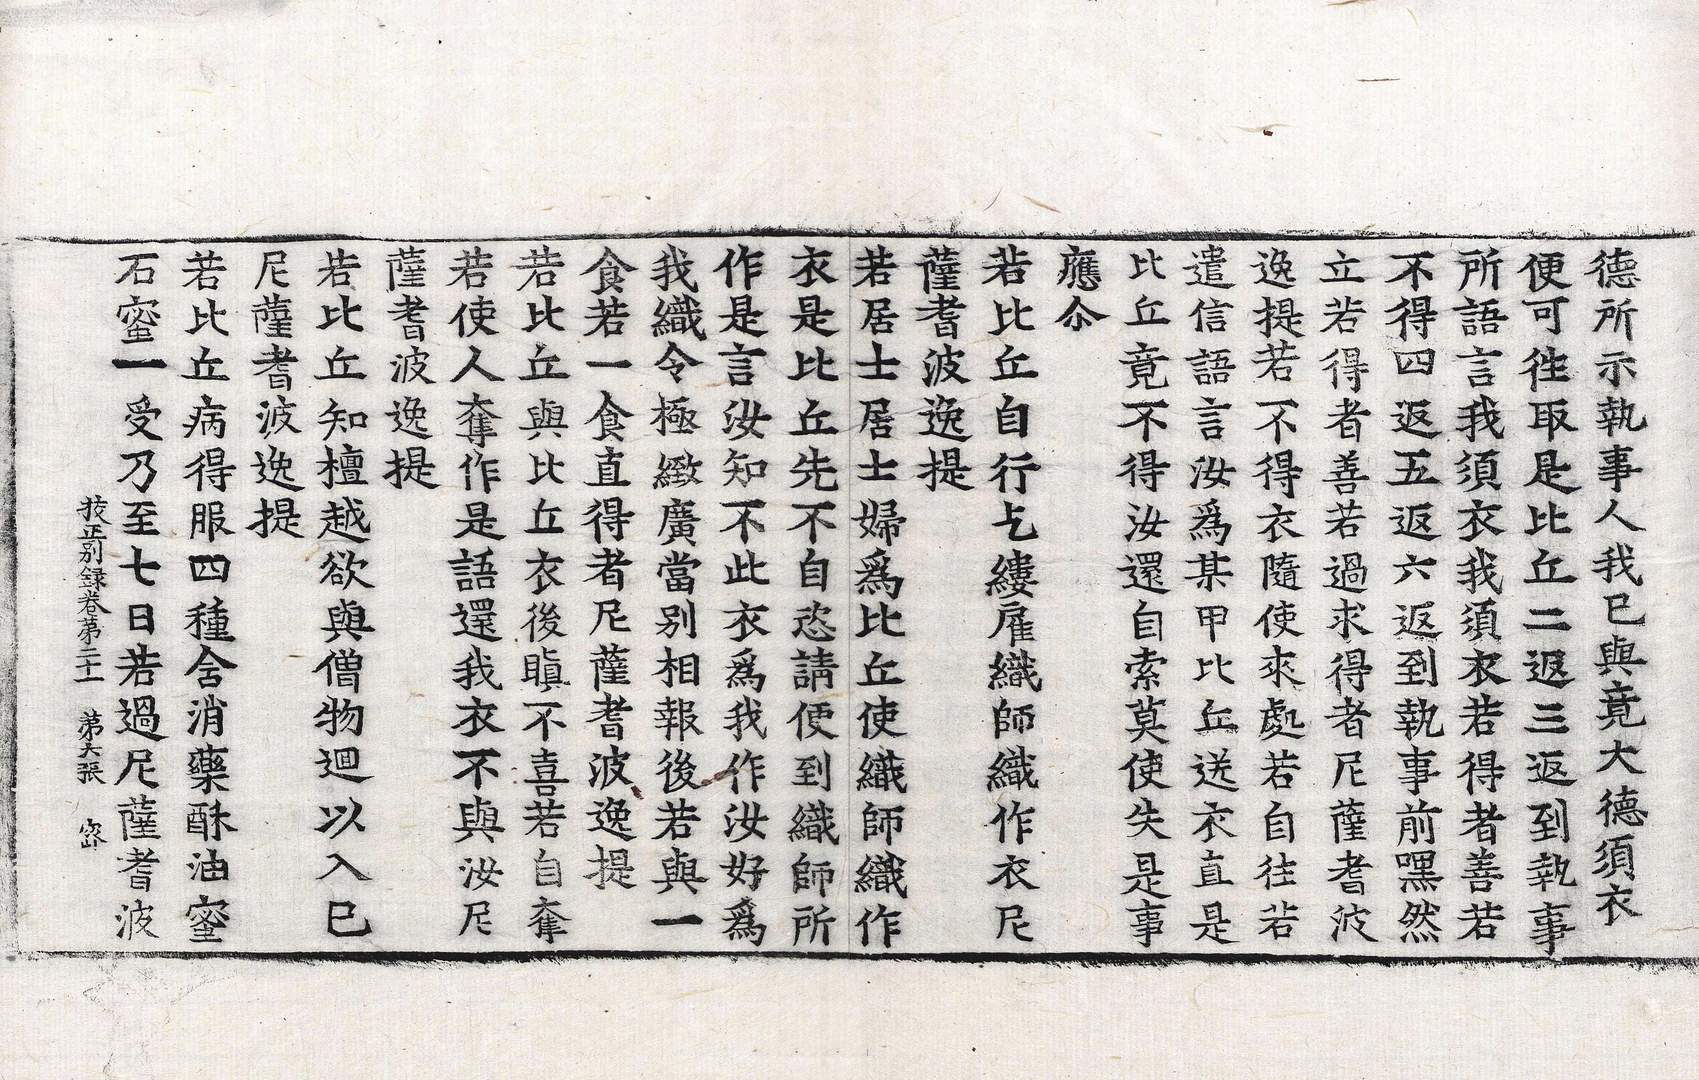 德所示執事人我已與竟大德須衣
便可徃取是比丘二返三返到執事
所語言我須衣我須衣若得者善若
不得四返五返六返到執事前嘿然
立若得者善若過求得者尼薩耆波
逸提若不得衣隨使來處若自往若
遣信語言汝爲某甲比丘送衣直是
比丘竟不得汝還自索莫使失是事
應尒
若比丘自行乞縷雇織師織作衣尼
薩耆波逸提
若居士居士婦爲比丘使織師織作
衣是比丘先不自恣請便到織師所
作是言汝知不此衣爲我作汝好爲
我織令極緻廣當别相報後若與一
食若一食直得者尼薩耆波逸提
若比丘與比丘衣後瞋不喜若自奪
若使人奪作是語還我衣不與汝尼
薩耆波逸提
若比丘知檀越欲與僧物迴以入已
尼薩耆波逸提
若比丘病得服四種含消藥酥油蜜
石蜜一受乃至七日若過尼薩耆波
挍正别録卷苐二十一 苐六張 宻